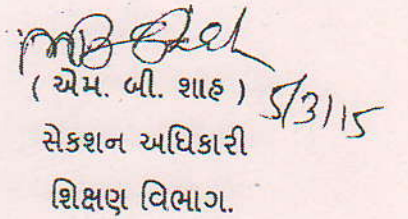 ( એમ. બી. શાહ ) 5/3/15
સેકશન અધિકારી
શિક્ષણ વિભાગ.